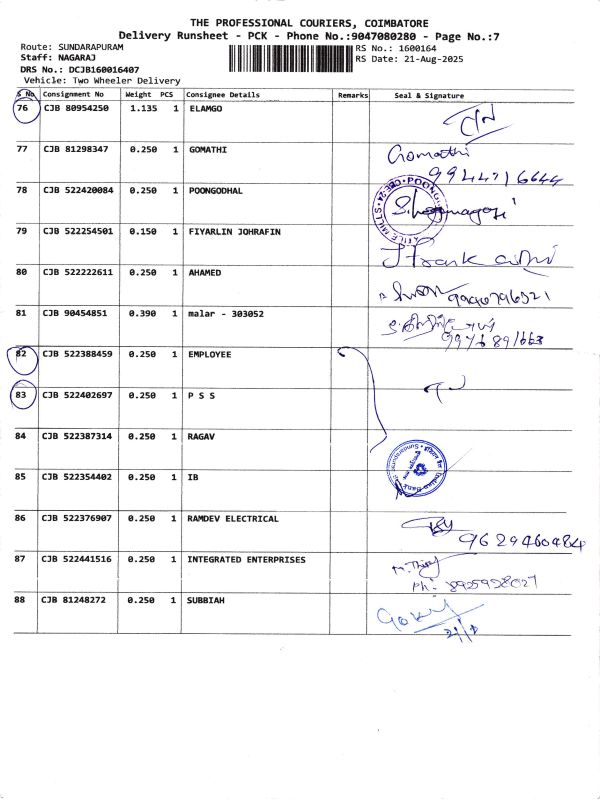 THE PROFESSIONAL COURIERS, COIMBATORE
Delivery Runsheet - PCK - Phone No.:9047080280 - Page No.:7
Route: SUNDARAPURAM RS No.: 1600164
Staff: NAGARAJ RS Date: 21-Aug-2025
DRS No.: DCJB160016407
Vehicle: Two Wheeler Delivery
S No. Consignment No Weight PCS Consignee Details Remarks Seal & Signature
76 CJB 80954250 1.135 1 ELAMGO
77 CJB 81298347 0.250 1 GOMATHI Gomathi
78 CJB 522420084 0.250 1 POONGODHAL
79 CJB 522254501 0.150 1 FIYARLIN JOHRAFIN
80 CJB 522222611 0.250 1 AHAMED
81 CJB 90454851 0.390 1 malar - 303052
82 CJB 522388459 0.250 1 EMPLOYEE
83 CJB 522402697 0.250 1 P S S
84 CJB 522387314 0.250 1 RAGAV
85 CJB 522354402 0.250 1 IB
86 CJB 522376907 0.250 1 RAMDEV ELECTRICAL
9629460484
87 CJB 522441516 0.250 1 INTEGRATED ENTERPRISES
Ph: 8925928027
88 CJB 81248272 0.250 1 SUBBIAH